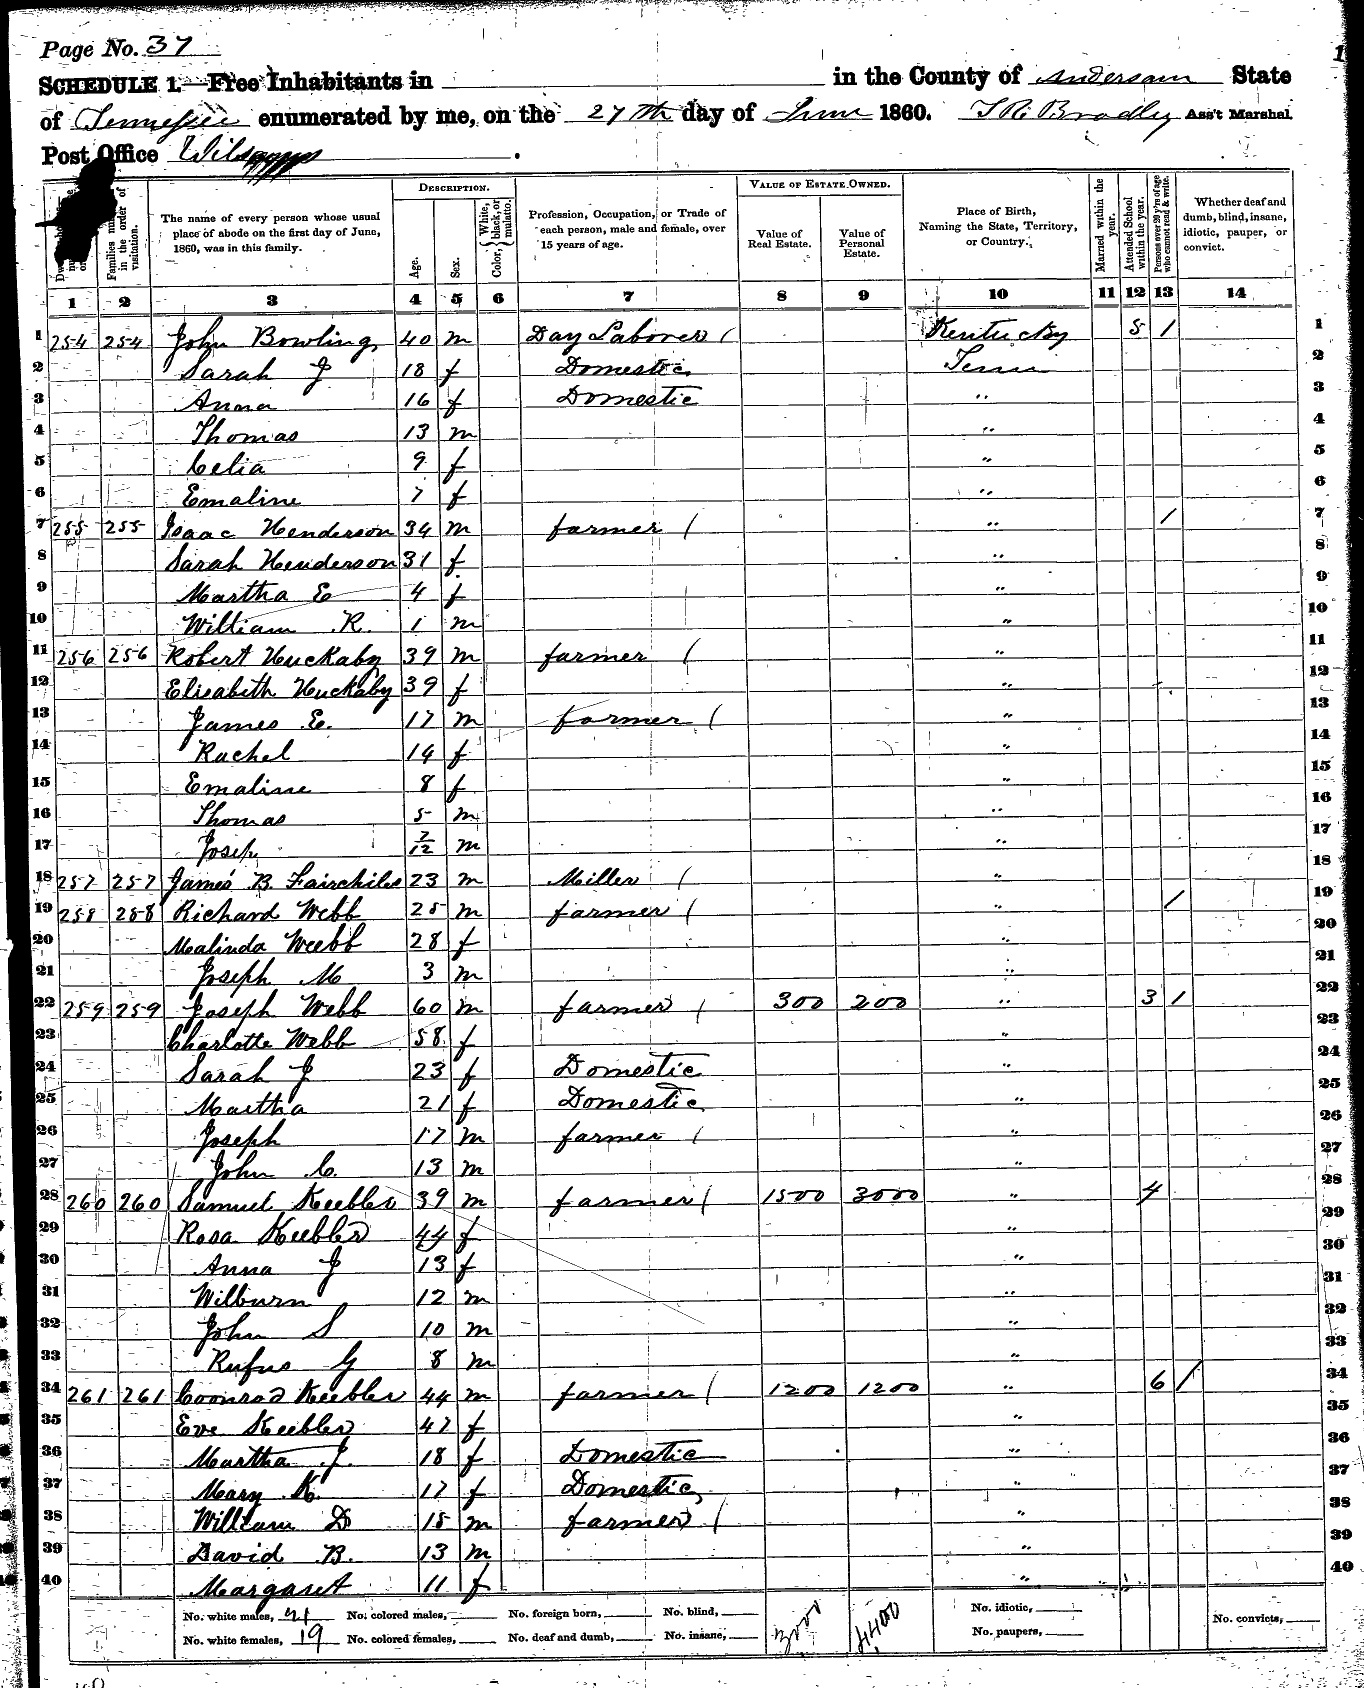 Page No. 37
SCHEDULE 1.—Free Inhabitants in in the County of Anderson State
of Tennessee enumerated by me, on the 27th day of June 1860. T R Bradley Ass't Marshal
Post Office
DESCRIPTION. VALUE OF ESTATE OWNED.
Families numbered in the order of visitation. The name of every person whose usual place of abode on the first day of June, 1860, was in this family. Age. Sex. Color, White, black, or mulatto. Profession, Occupation, or Trade of each person, male and female, over 15 years of age. Value of Real Estate. Value of Personal Estate. Place of Birth, Naming the State, Territory, or Country. Married within the year. Attended School within the year. Persons over 20 y'rs of age who cannot read & write. Whether deaf and dumb, blind, insane, idiotic, pauper, or convict.
1 2 3 4 5 6 7 8 9 10 11 12 13 14
1 254 254 John Bowling 40 m Day Laborer Kentucky 5 1 1
2 Sarah J 18 f Domestic Tenn 2
3 Anna 16 f Domestic " 3
4 Thomas 13 m " 4
5 Celia 9 f " 5
6 Emaline 7 f " 6
7 255 255 Isaac Henderson 34 m farmer " 1 7
8 Sarah Henderson 31 f " 8
9 Martha E 4 f " 9
10 William R. 1 m " 10
11 256 256 Robert Huckaby 39 m farmer " 11
12 Elisabeth Huckaby 39 f " 12
13 James E. 17 m farmer " 13
14 Rachel 14 f " 14
15 Emaline 8 f " 15
16 Thomas 5 m " 16
17 Josep 7/12 m " 17
18 257 257 James B. Fairchiles 23 m Miller " 18
19 258 258 Richard Webb 25 m farmer " 1 19
20 Malinda Webb 28 f " 20
21 Joseph M 3 m " 21
22 259 259 Joseph Webb 60 m farmer 300 200 " 3 1 22
23 Charlotte Webb 58 f " 23
24 Sarah J 23 f Domestic " 24
25 Martha 21 f Domestic " 25
26 Joseph 17 m farmer " 26
27 John C. 13 m " 27
28 260 260 Samuel Keebler 39 m farmer 1500 3000 " 4 28
29 Rosa Keebler 44 f " 29
30 Anna J 13 f " 30
31 Wilburn 12 m " 31
32 John S 10 m " 32
33 Rufus G 8 m " 33
34 261 261 Coonrod Keebler 44 m farmer 1200 1200 " 6 1 34
35 Eve Keebler 47 f " 35
36 Martha J. 18 f Domestic " 36
37 Mary K. 17 f Domestic " 37
38 William D 15 m farmer " 38
39 David B. 13 m " 39
40 Margaret 11 f " 40
No. white males, 21 No. colored males, No. foreign born, No. blind, 3000 4400 No. idiotic, No. convicts,
No. white females, 19 No. colored females, No. deaf and dumb, No. insane, No. paupers,